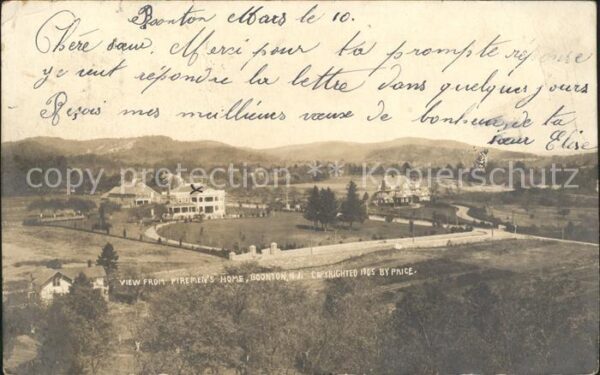 Boonton Mars le 10.
Chère sœur. Merci pour ta prompte réponse
Je veut répondre la lettre dans quelques jours
Reçois mes meillieurs vœux de bonheur de ta
sœur Elise
copy protection * Kopierschutz
VIEW FROM FIREMEN'S HOME, BOONTON, N.J. COPYRIGHTED 1905 BY PRICE.